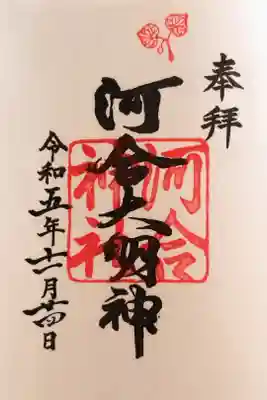 奉拝
河合大明神
河合
神社
令和五年十一月廿四日